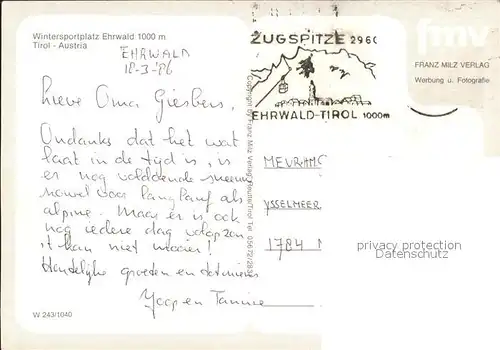 Wintersportplatz Ehrwald 1000 m
Tirol - Austria
EHRWALD
18-3-'86
Lieve Oma Giesbers,
Ondanks dat het wat
laat in de tijd is, is
er nog voldoende sneeuw
zowel voor langlauf als
alpine. Maar er is ook
nog iedere dag volop zon
't kan niet mooier!
Hartelijke groeten en
Jaap en
W 243/1040
Copyright by Franz Milz Verlag, Reutte/Tirol Tel. 05672/283
ZUGSPITZE 2960
EHRWALD-TIROL 1000m
fmv
FRANZ MILZ VERLAG
Werbung u. Fotografie
MEVR.
YSSELMEER
1784
privacy protection
oldthing.com